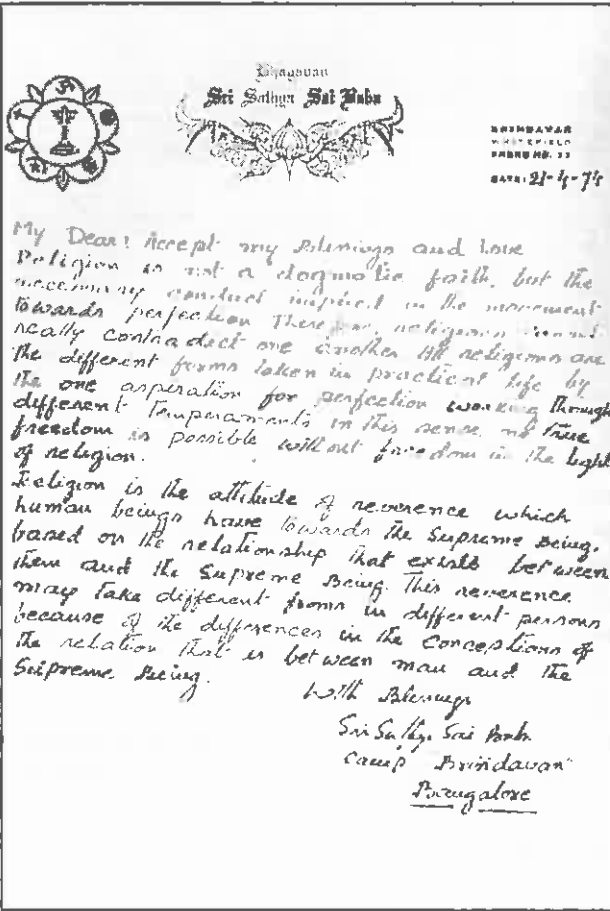 Bhagavan
Sri Sathya Sai Baba
BRINDAVAN
WHITEFIELD
DATE: 21-4-74
My Dear! Accept my Blessings and Love
Religion is not a dogmatic faith, but the
necessary conduct implicit in the movement
towards perfection Therefore, religions cannot
really contradict one another All religions are
the different forms taken in practical life by
the one aspiration for perfection working through
different Temperaments in this sense, no true
freedom is possible without freedom in the light
of religion.
Religion is the attitude of reverence which
human beings have towards the Supreme Being,
based on the relationship that exists between
them and the Supreme Being. This reverence
may take different forms in different persons
because of the differences in the Conceptions of
the relation that is between man and the
Supreme Being.
With Blessings
Sri Sathya Sai Baba
Camp "Brindavan"
Bangalore